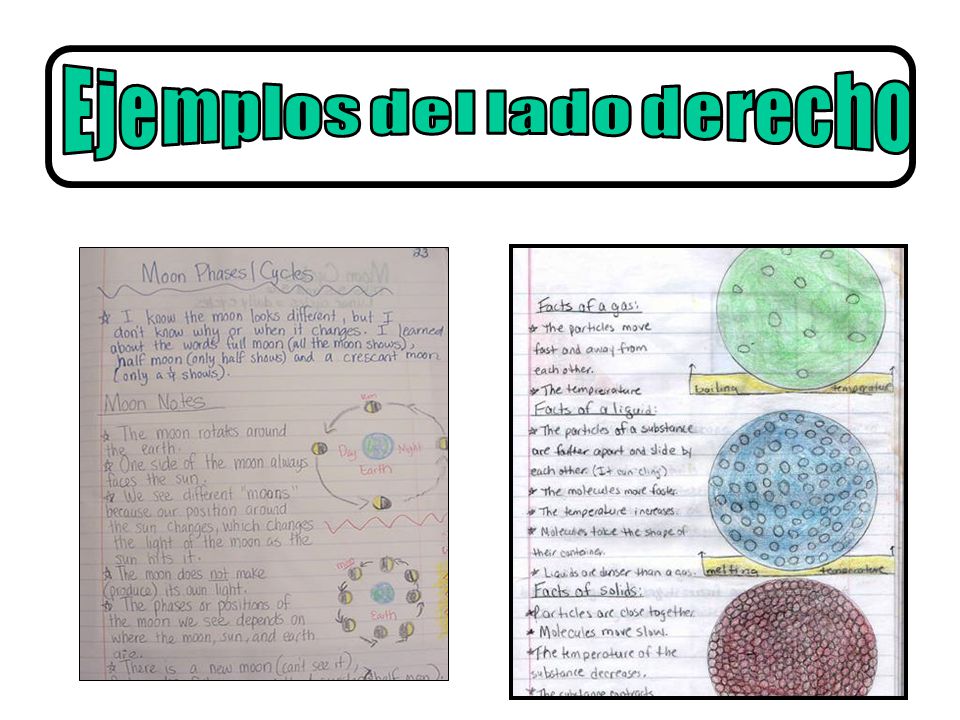 Ejemplos del lado derecho
23
Moon Phases/Cycles
I know the moon looks different, but I
don't know why or when it changes. I learned
about the words full moon (all the moon shows),
half moon (only half shows) and a crescant moon
(only a shows).
Moon Notes
The moon rotates around
the earth.
One side of the moon always
faces the sun.
We see different "moons"
because our position around
the sun changes, which changes
the light of the moon as the
sun hits it.
The moon does not make
(produce) its own light.
The phases or positions of
the moon we see depends on
where the moon, sun, and earth
are.
There is a new moon (can't see it),
Day
Night
Earth
moon
Earth
Facts of a gas:
The particles move
fast and away from
each other.
The tempreirature
boiling temperature
Facts of a liquid:
The particles of a substance
are farther apart and slide by
each other. (It can cling)
The molecules move faster.
The temperature increases.
Molecules take the shape of
their container.
Liquids are denser than a gas.
melting temperature
Facts of solids:
Particles are close together.
Molecules move slow.
The temperature of the
substance decreases.
The substance contracts